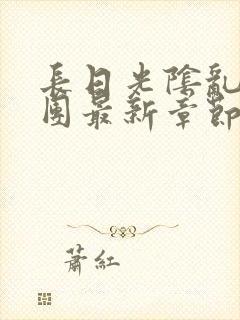 長日光陰亂
團最新章節
蕭紅